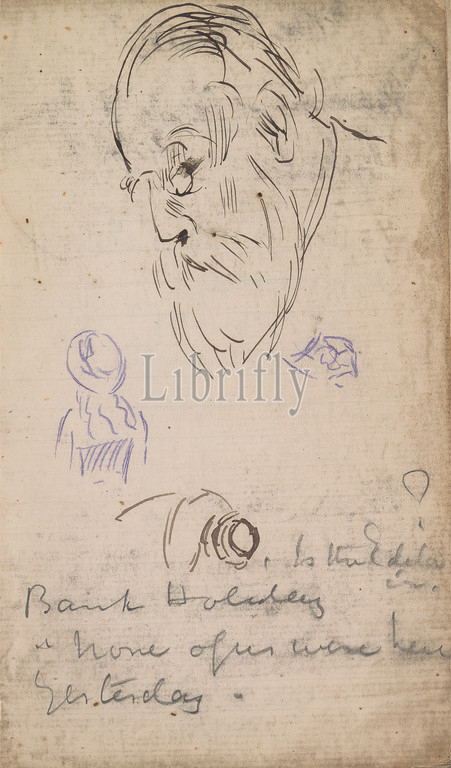 Librifly
Is the Editor
in.
Bank Holiday
" None of us were here
Yesterday.